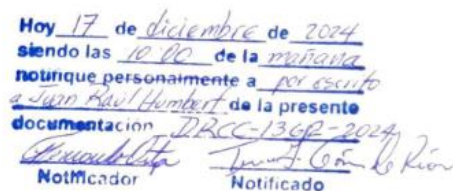 Hoy 17 de diciembre de 2024
siendo las 10:00 de la mañana
notifique personalmente a por escrito
a Juan Raúl Humbert de la presente
documentación DRCC-1362-2024
Notificador Notificado